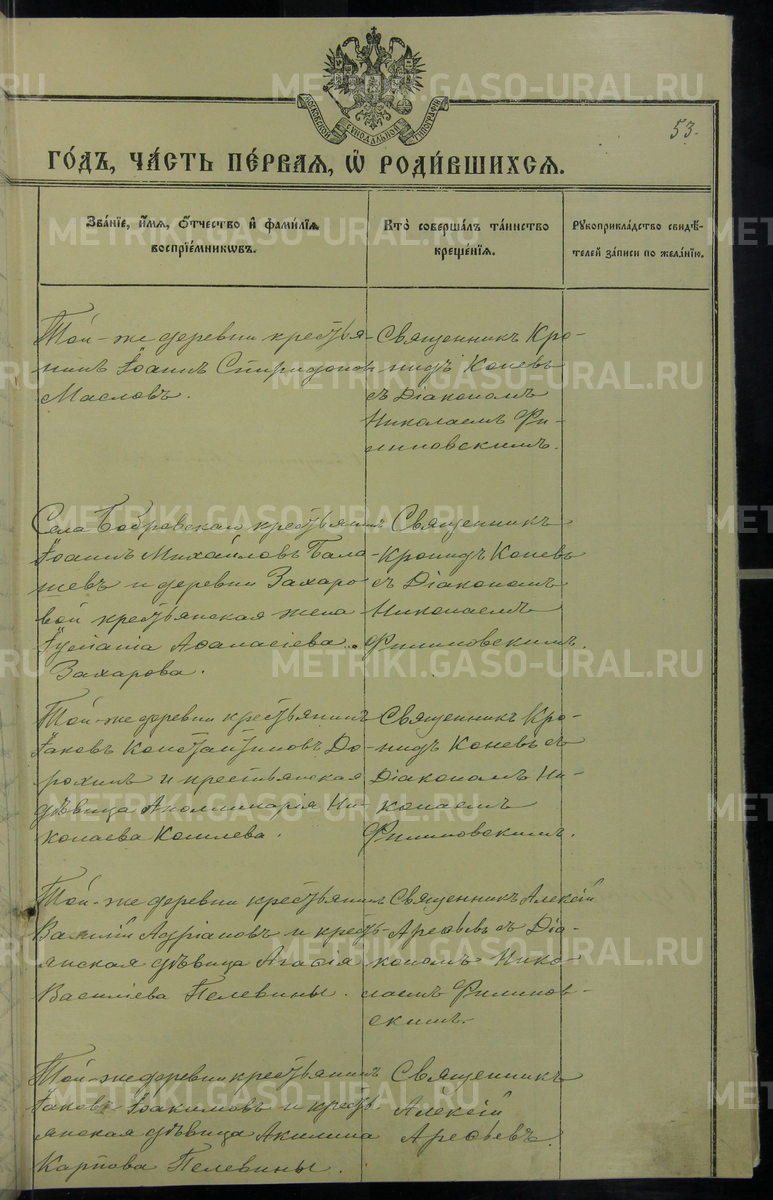 МОСКОВСКОЙ СѴНОДАЛЬНОЙ ТИПОГРАФІИ
53.
ГО́ДЪ, ЧА́СТЬ ПЕ́РВАЯ, Ѡ҆ РОДИ́ВШИХСЯ.
Зва́нїе, и҆́мя, ѻ҆́тчество и҆ фами́лїѧ
воспрїе́мникѡвъ.
Кто̀ соверша́лъ та́инство
креще́нїѧ.
Рꙋкоприкла́дство свидѣ́-
телей за́писи по жела́нїю.
Той-же деревни крестья-
нинъ Іоаннъ Спиридонов
Масловъ.
Священникъ Кро-
нидъ Коневъ
съ Діакономъ
Николаемъ Фи-
липповскимъ.
Села Бобровскаго крестьянинъ
Іоаннъ Михайловъ Бала-
шевъ и деревни Захаро
вой крестьянская жена
Афанасіева
Захарова.
Священникъ
Кронидъ Коневъ
съ Діакономъ
Николаемъ
Филипповскимъ.
Той-же деревни крестьянинъ
Іаковъ Константиновъ До-
рохинъ и крестьянская
дѣвица Аполлинарія Ни-
колаева Кошлева.
Священникъ Кро-
нидъ Коневъ съ
Діакономъ Ни-
колаемъ
Филипповскимъ.
Той-же деревни крестьянинъ
Василій Адріановъ и кресть-
янская дѣвица Агафія
Василіева Пелевины.
Священникъ Алексій
Арефьевъ съ Діа-
кономъ Нико-
лаемъ Филиппов-
скимъ.
Той-же деревни крестьянинъ
Іаковъ Іоакимовъ и кресть-
янская дѣвица Акилина
Карпова Пелевины.
Священникъ
Алексій
Арефьевъ.
METRIKI.GASO-URAL.RU